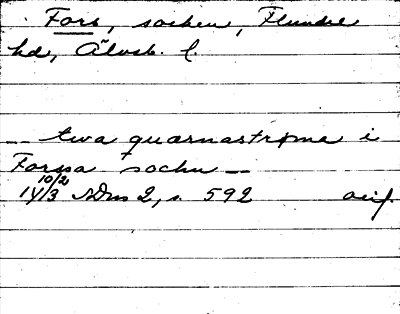 Fors, socken, Flundre
hd, Älvsb. l.
-- twa quarnastrøma i
Forssa sochn --
10/2
14/3 NDms 2, s. 592